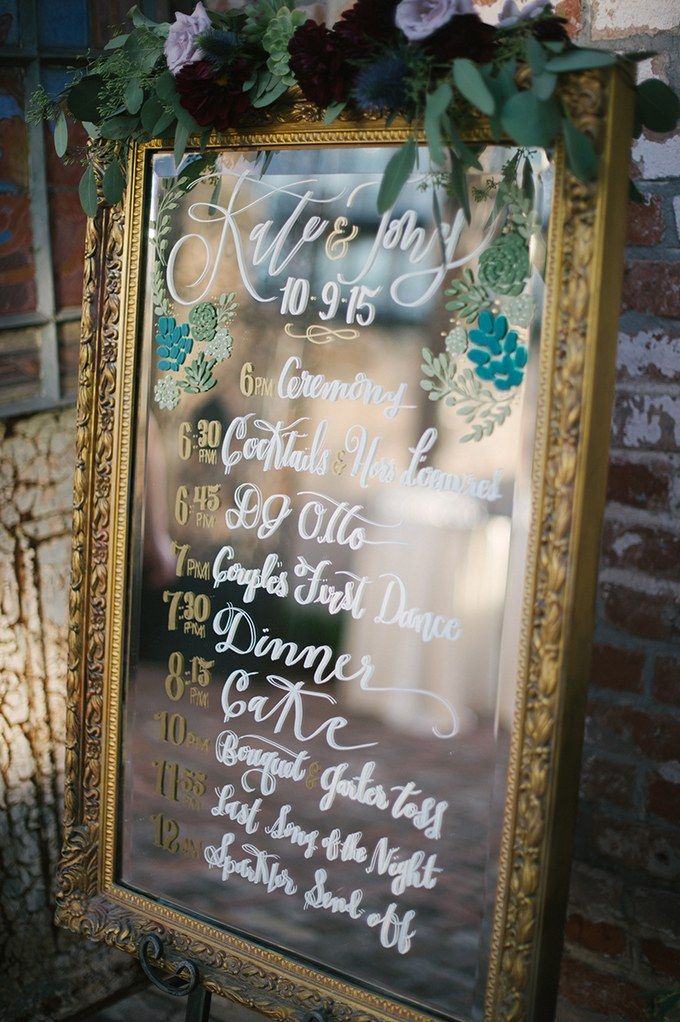 Kate & Tony
10·9·15
6PM Ceremony
6:30PM Cocktails & Hors Doeuvres
6:45PM DJ Otto
7PM Couple's First Dance
7:30PM Dinner
8:15PM Cake
10PM Bouquet & Garter toss
11:55PM Last Song of the Night
12AM Sparkler Send off